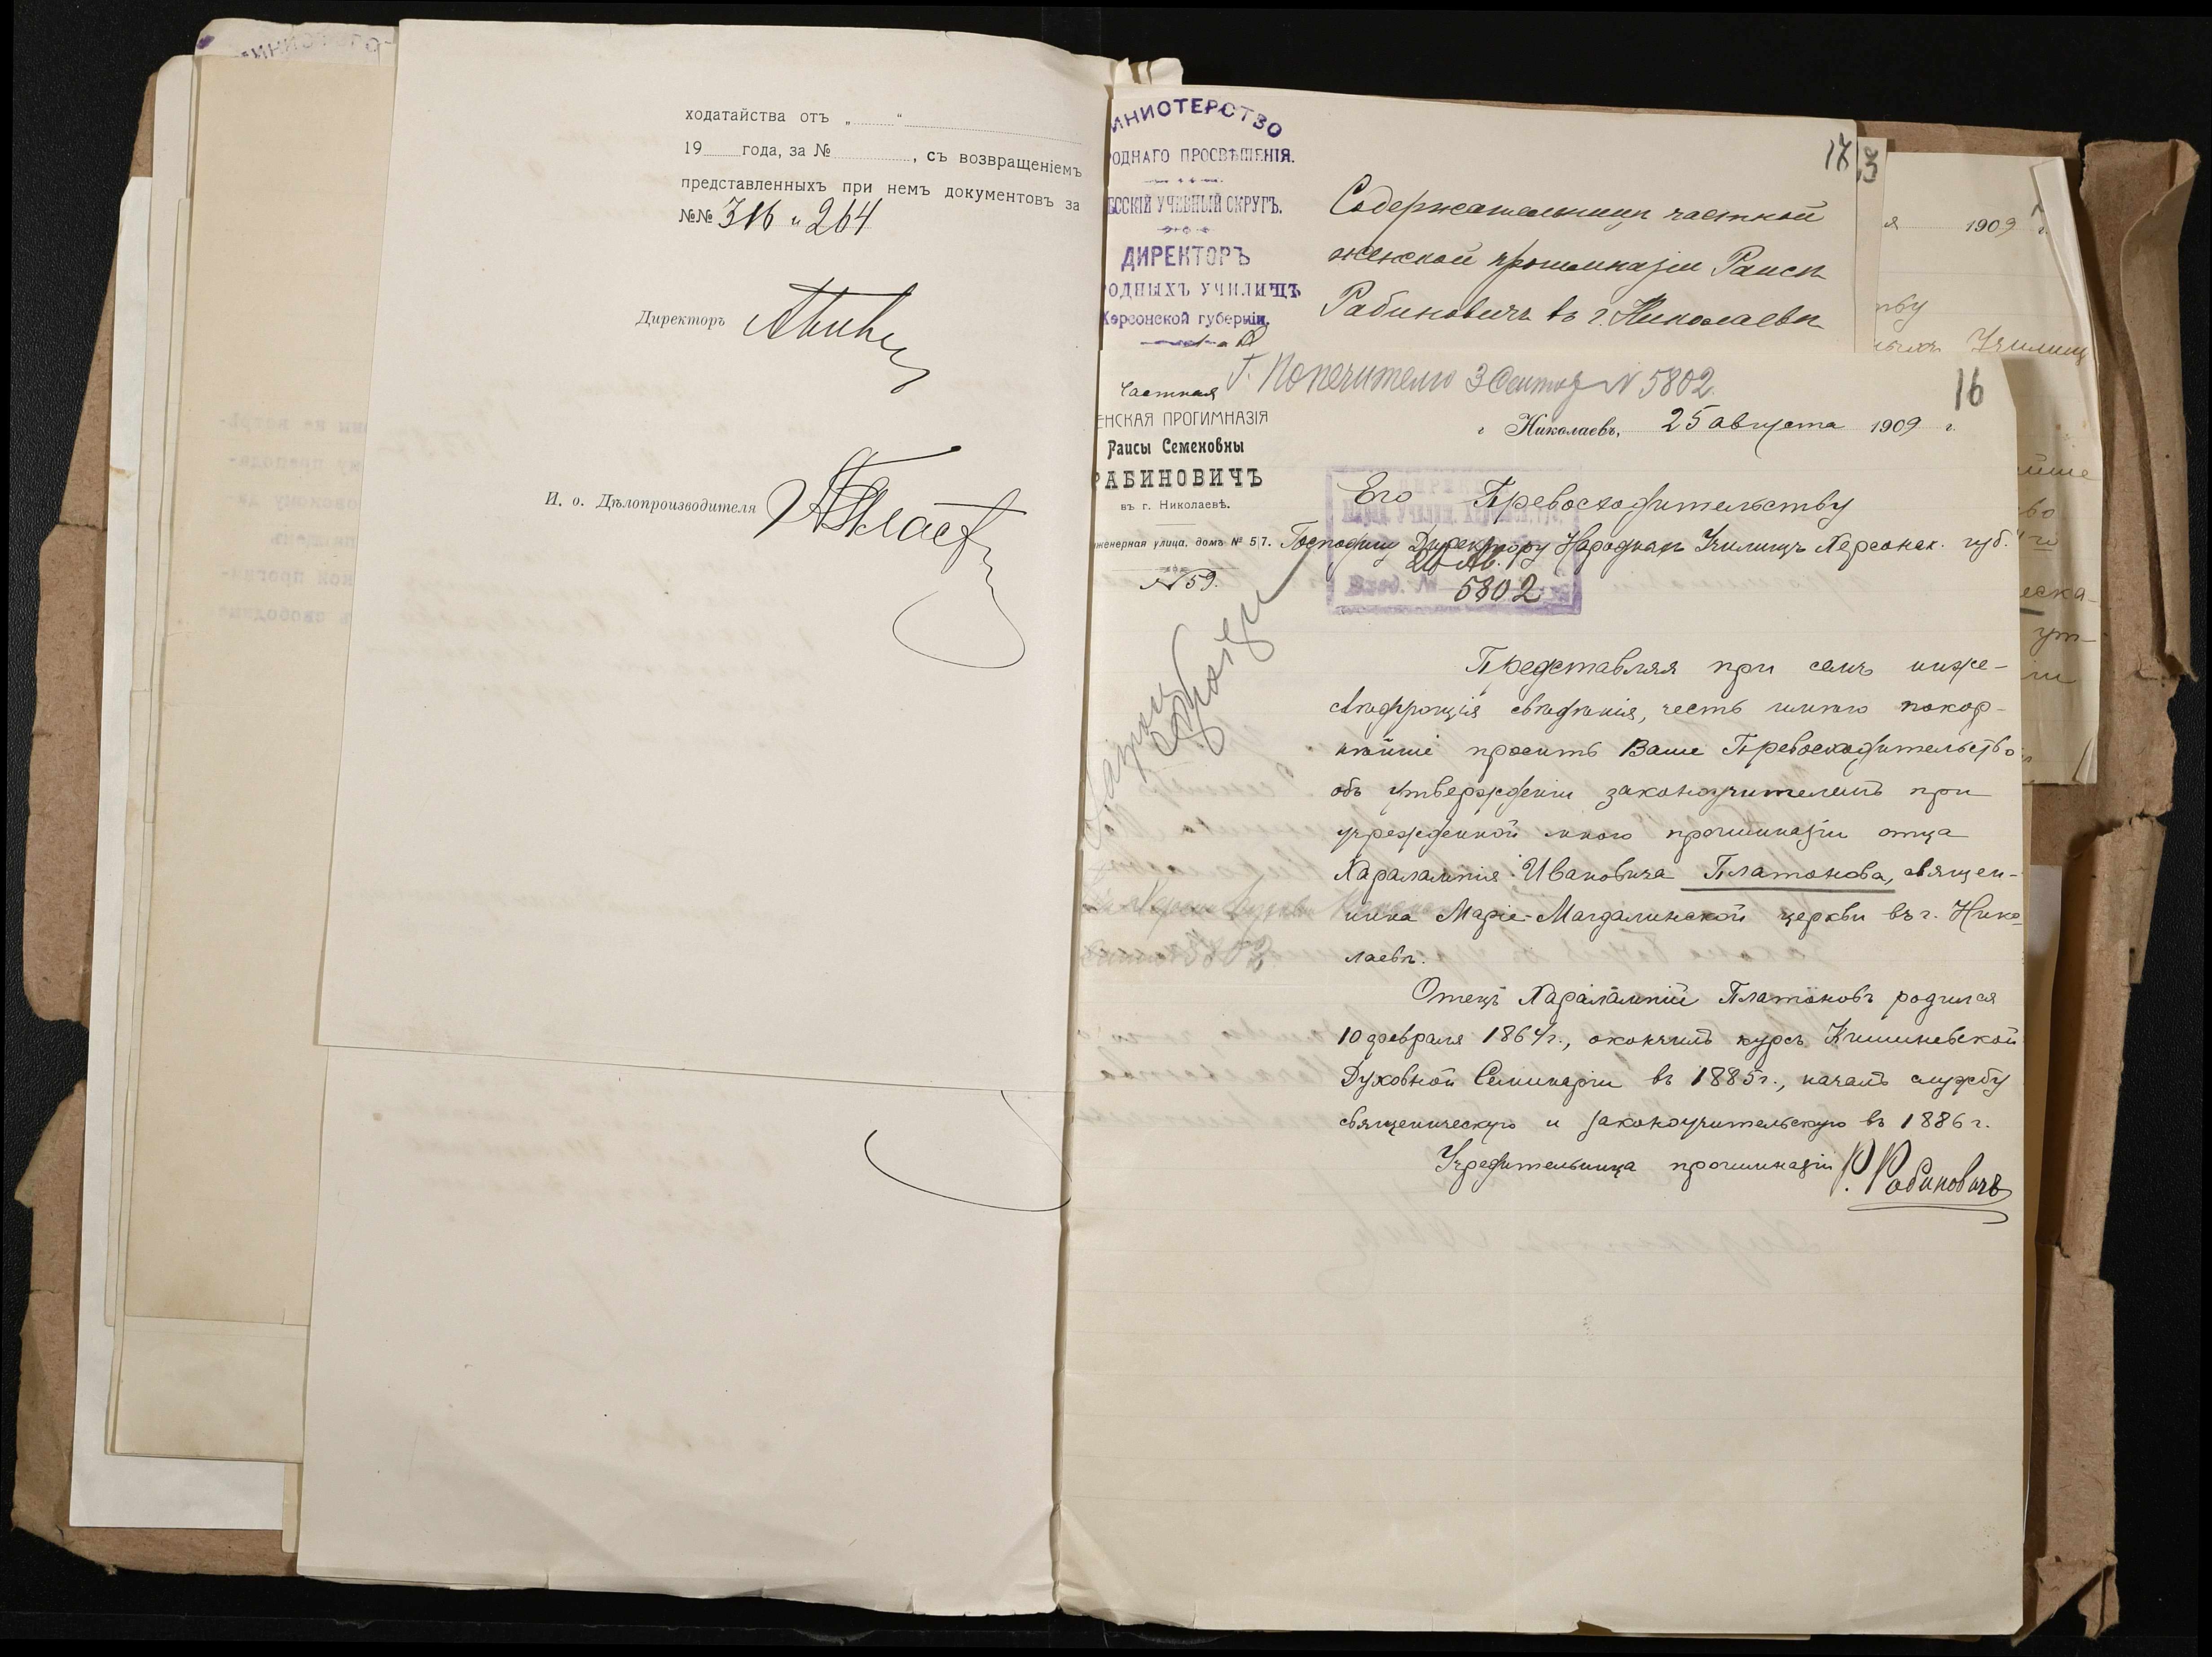 ходатайства отъ „ “
19 года, за № , съ возвращеніемъ
представленныхъ при немъ документовъ за
№№ 316 и 264
Директоръ
И. о. Дѣлопроизводителя
ИНИСТЕРСТВО
РОДНАГО ПРОСВѢЩЕНІЯ.
ССКІЙ УЧЕБНЫЙ ОКРУГЪ.
ДИРЕКТОРЪ
РОДНЫХЪ УЧИЛИЩЪ
Херсонской губерніи.
17
13
Содержательницѣ частной
женской прогимназіи Раисѣ
Рабиновичъ въ г. Николаевѣ
я 1909 г.
тву
Училищ
Г. Попечителю 3 Сентяб N 5802.
16
Частная
ЕНСКАЯ ПРОГИМНАЗІЯ
Раисы Семеновны
РАБИНОВИЧЪ
въ г. Николаевѣ.
нженерная улица, домъ № 57.
N 59.
г Николаевъ, 25 августа 1909 г.
Его Превосходительству
Господину Директору Народныхъ Училищъ Херсонск. губ.
26 Ав.
5802
Представляя при семъ ниже-
слѣдующія свѣдѣнія, честь имѣю покор-
нѣйше просить Ваше Превосходительство
объ утвержденіи законоучителемъ при
учрежденной мною прогимназіи отца
Харалампія Ивановича Платонова, священ-
ника Маріе-Магдалинской церкви въ г. Нико
лаевѣ.
Отецъ Харалампій Платоновъ родился
10 февраля 1864 г., окончилъ курсъ Кишиневской
Духовной Семинаріи въ 1885 г., началъ службу
священическую и законоучительскую въ 1886 г.
Учредительница прогимназіи Р. Рабиновичъ